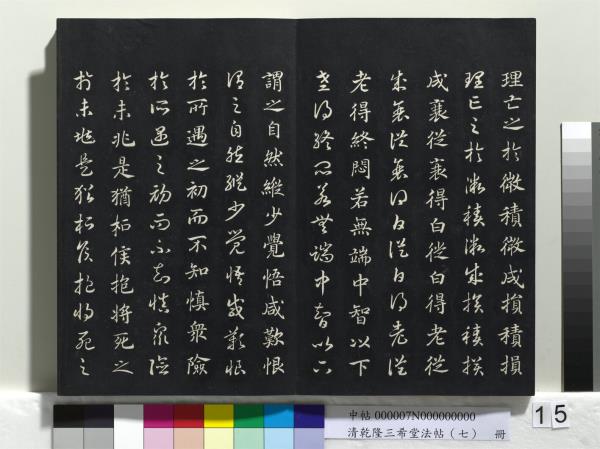 理亡之於微積微成損積損
理亡之於微積微成損積損
成衰從衰得白從白得老從
成衰從衰得白從白得老從
老得終悶若無端中智以下
老得終悶若無端中智以下
謂之自然縱少覺悟咸歎恨
謂之自然縱少覺悟咸歎恨
於所遇之初而不知慎衆險
於所遇之初而不知慎衆險
於未兆是猶桓侯抱將死之
於未兆是猶桓侯抱將死之
中帖 000007N000000000
清乾隆三希堂法帖（七） 冊
15